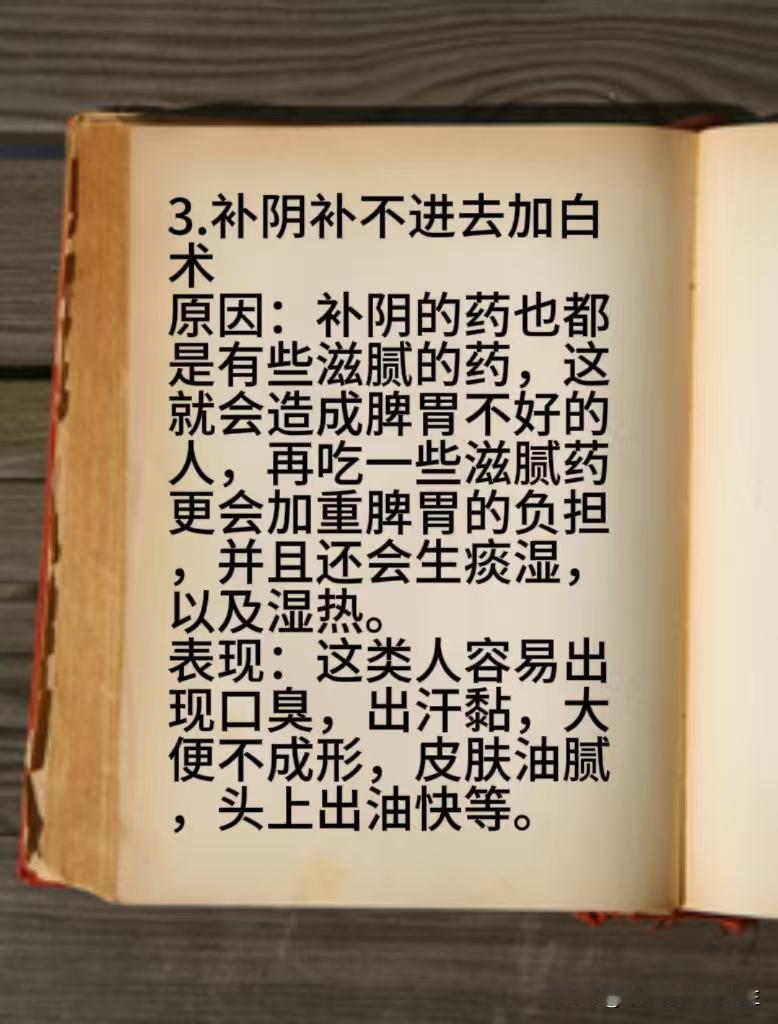 3.补阴补不进去加白
术
原因：补阴的药也都
是有些滋腻的药，这
就会造成脾胃不好的
人，再吃一些滋腻药
更会加重脾胃的负担
，并且还会生痰湿，
以及湿热。
表现：这类人容易出
现口臭，出汗黏，大
便不成形，皮肤油腻
，头上出油快等。